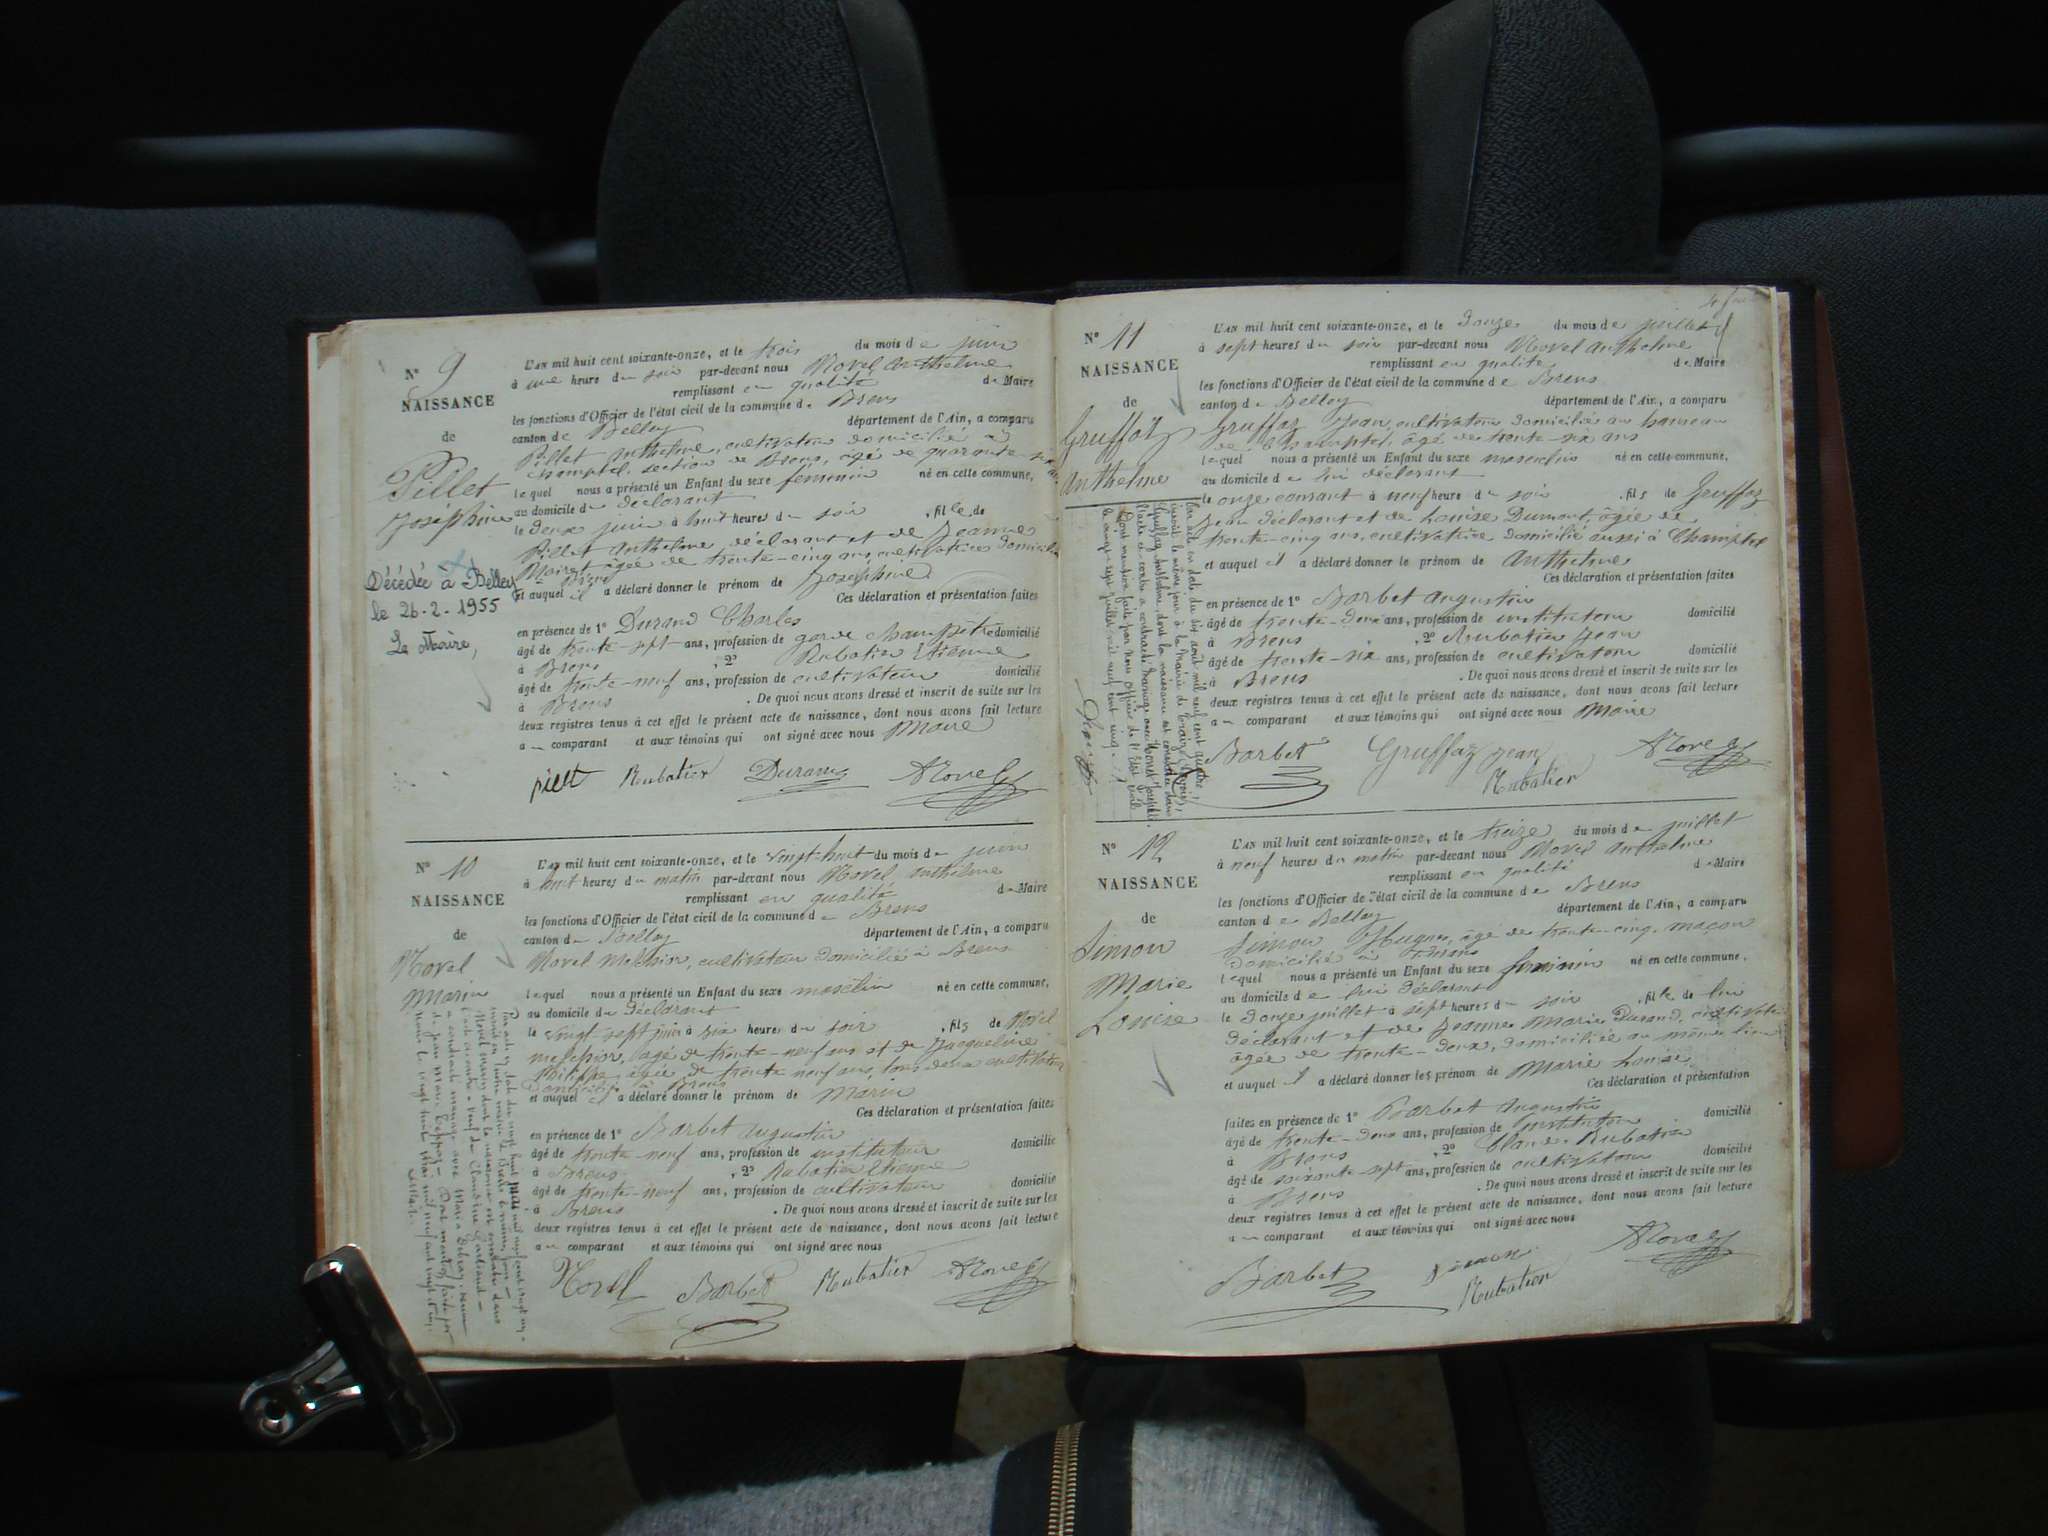 N° 9
NAISSANCE
de
Pillet
Joséphine
Décédée à Belley
le 26-2-1955
Le Maire,
L'AN mil huit cent soixante-onze, et le trois du mois de juin
à une heure du soir par-devant nous Novel Anthelme
remplissant en qualité de Maire
les fonctions d'Officier de l'état civil de la commune de Brens
canton de Belley département de l'Ain, a comparu
Pillet Anthelme, cultivateur domicilié à
Champtel, section de Brens, âgé de quarante
lequel nous a présenté un Enfant du sexe féminin né en cette commune,
au domicile du déclarant
le deux juin à huit heures du soir , fille de
Pillet Anthelme, déclarant et de Jeanne
Moiret âgée de trente-cinq ans, cultivatrice domiciliée
à Brens
et auquel il a déclaré donner le prénom de Joséphine
Ces déclaration et présentation faites
en présence de 1° Durand Charles
âgé de trente-sept ans, profession de garde champêtre domicilié
à Brens , 2° Rubatier Etienne
âgé de trente-neuf ans, profession de cultivateur domicilié
à Brens . De quoi nous avons dressé et inscrit de suite sur les
deux registres tenus à cet effet le présent acte de naissance, dont nous avons fait lecture
au comparant et aux témoins qui ont signé avec nous Maire
Rubatier Durand ANovel
N° 10
NAISSANCE
de
Novel
Marin
L'AN mil huit cent soixante-onze, et le vingt-huit du mois de juin
à huit heures du matin par-devant nous Novel Anthelme
remplissant en qualité de Maire
les fonctions d'Officier de l'état civil de la commune de Brens
canton de Belley département de l'Ain, a comparu
Novel Melchior, cultivateur domicilié à Brens
lequel nous a présenté un Enfant du sexe masculin né en cette commune,
au domicile du déclarant
le vingt-sept juin à six heures du soir , fils de Novel
Melchior, âgé de trente-neuf ans et de Jacqueline
Philippe, âgée de trente neuf ans, tous deux cultivateurs
domiciliés à Brens
et auquel il a déclaré donner le prénom de Marin
Ces déclaration et présentation faites
en présence de 1° Barbet Augustin
âgé de trente-neuf ans, profession de instituteur domicilié
à Brens , 2° Rubatier Etienne
âgé de trente-neuf ans, profession de cultivateur domicilié
à Brens . De quoi nous avons dressé et inscrit de suite sur les
deux registres tenus à cet effet le présent acte de naissance, dont nous avons fait lecture
au comparant et aux témoins qui ont signé avec nous
Novel Barbet Rubatier ANovel
N° 11
NAISSANCE
de
Gruffaz
Anthelme
Par acte en date du six août mil neuf cent quatre,
Gruffaz Anthelme, dont la naissance est constatée dans
l'acte ci-contre a contracté mariage avec
Dont mention faite par nous Officier de l'Etat civil
le vingt-sept juillet mil neuf cent cinq.
L'AN mil huit cent soixante-onze, et le douze du mois de juillet
à sept heures du soir par-devant nous Novel Anthelme
remplissant en qualité de Maire
les fonctions d'Officier de l'état civil de la commune de Brens
canton de Belley département de l'Ain, a comparu
Gruffaz Jean, cultivateur domicilié au hameau
de Champtel, âgé de trente-six ans
lequel nous a présenté un Enfant du sexe masculin né en cette commune,
au domicile de lui déclarant
le onze courant à neuf heures du soir , fils de Gruffaz
Jean déclarant et de Louise Dumont, âgée de
trente-cinq ans, cultivatrice domicilié aussi à Champtel
et auquel il a déclaré donner le prénom de Anthelme
Ces déclaration et présentation faites
en présence de 1° Barbet Augustin
âgé de trente-deux ans, profession de instituteur domicilié
à Brens , 2° Rubatier Jean
âgé de trente-six ans, profession de cultivateur domicilié
à Brens . De quoi nous avons dressé et inscrit de suite sur les
deux registres tenus à cet effet le présent acte de naissance, dont nous avons fait lecture
au comparant et aux témoins qui ont signé avec nous Maire
Barbet Gruffaz Jean ANovel
Rubatier
N° 12
NAISSANCE
de
Simon
Marie
Louise
L'AN mil huit cent soixante-onze, et le treize du mois de juillet
à neuf heures du matin par-devant nous Novel Anthelme
remplissant en qualité de Maire
les fonctions d'Officier de l'état civil de la commune de Brens
canton de Belley département de l'Ain, a comparu
Simon Hugues, âgé de trente-cinq, maçon
domicilié à Brens
lequel nous a présenté un Enfant du sexe féminin né en cette commune,
au domicile de lui déclarant
le douze juillet à sept heures du soir , fille de lui
déclarant et de Jeanne Marie Durand, cultivatrice
âgée de trente-deux, domiciliée au même lieu
et auquel il a déclaré donner les prénom de Marie Louise
Ces déclaration et présentation
faites en présence de 1° Barbet Augustin
âgé de trente-deux ans, profession de Instituteur domicilié
à Brens , 2° Claude Rubatier
âgé de soixante-sept ans, profession de cultivateur domicilié
à Brens . De quoi nous avons dressé et inscrit de suite sur les
deux registres tenus à cet effet le présent acte de naissance, dont nous avons fait lecture
au comparant et aux témoins qui ont signé avec nous
Barbet Simon ANovel
Rubatier